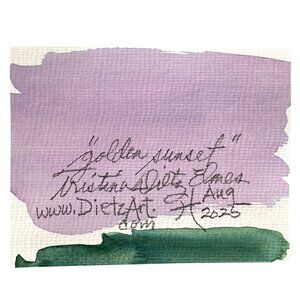 "golden sunset"
Kristina Dietz Elmes
www.DietzArt. Aug
com 2025